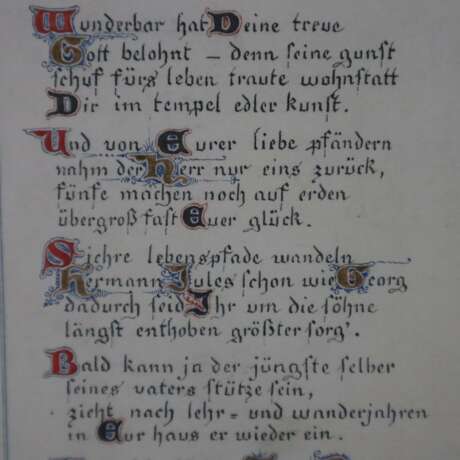 Wunderbar hat Deine treue
Gott belohnt – denn seine gunst
schuf fürs leben traute wohnstatt
Dir im tempel edler kunst.
Und von Eurer liebe pfändern
nahm der Herr nur eins zurück,
fünfe machen noch auf erden
übergroß fast Euer glück.
Sichre lebenspfade wandeln
Hermann Jules schon wie Georg
dadurch seid Ihr um die söhne
längst enthoben größter sorg'.
Bald kann ja der jüngste selber
seines vaters stütze sein,
zieht nach lehr= und wanderjahren
in Eur haus er wieder ein.